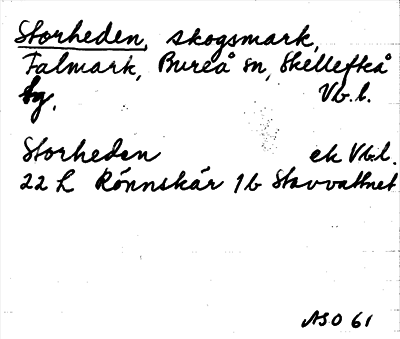 Storheden, skogsmark,
Falmark, Bureå sn, Skellefteå
tg. Vb. l.
Storheden ek Vb.l.
22 L Rönnskär 1b Stavvattnet
ASO 61